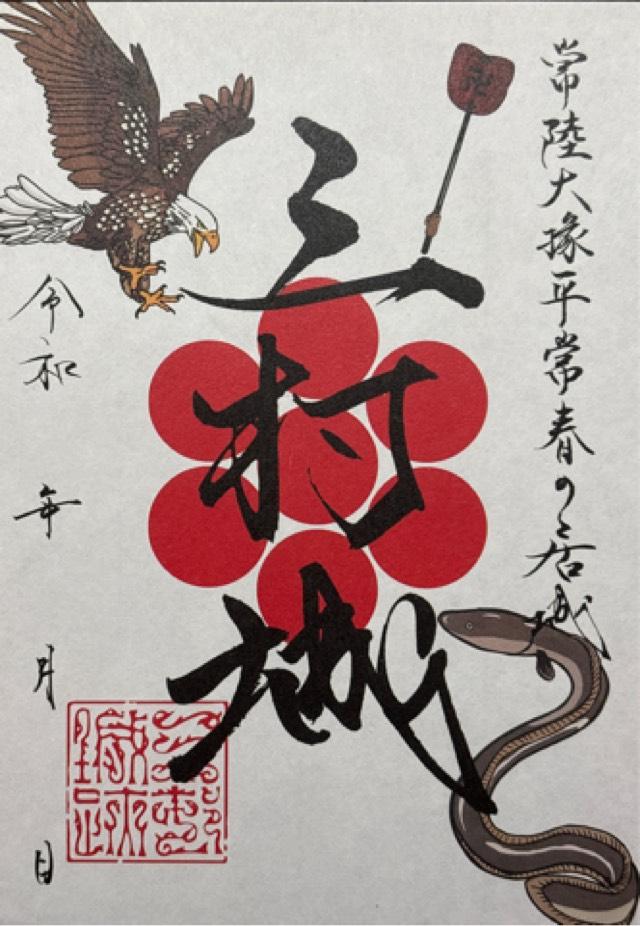 常陸大掾平常春の居城
三村城
令和 年 月 日